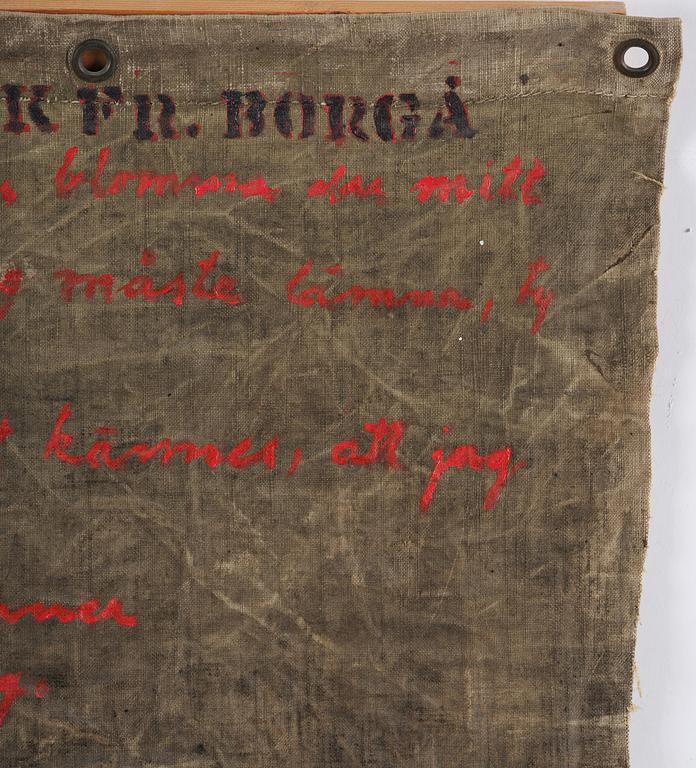 K FR. BORGÅ
blomma mitt
måste lämna, ty
kännes, att jag